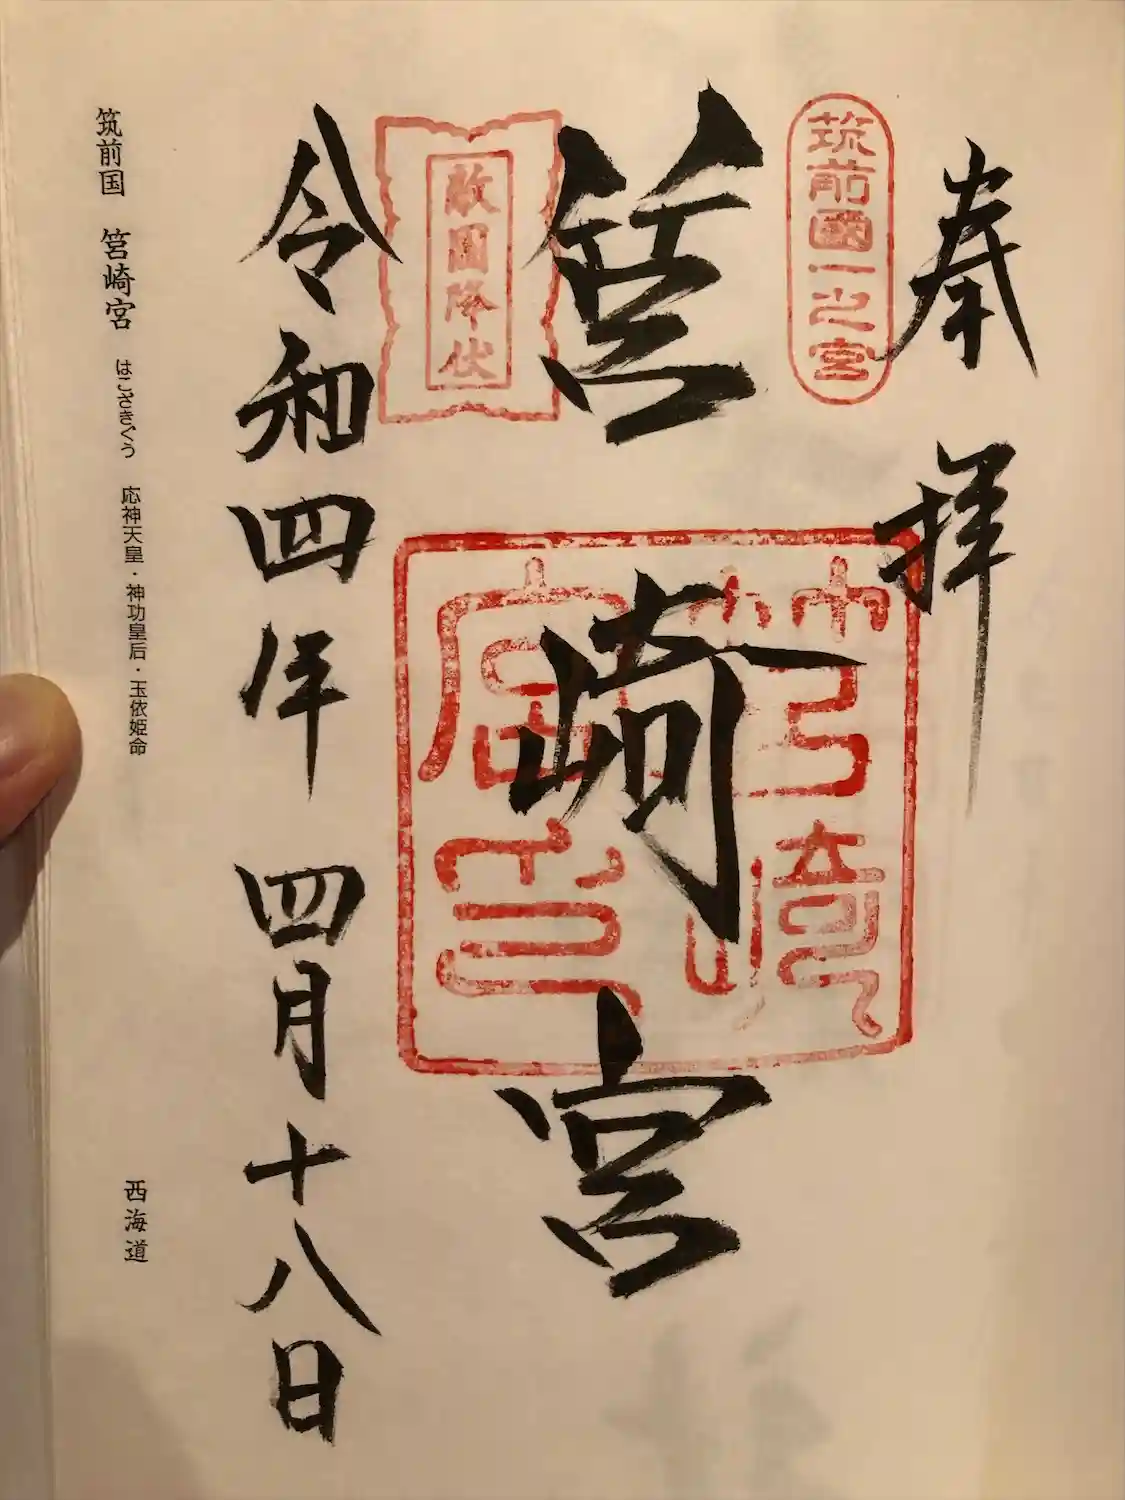 奉拝
筑前國一之宮
筥崎宮
敵國降伏
令和四年 四月十八日
筑前国 筥崎宮 はこざきぐう 応神天皇・神功皇后・玉依姫命
西海道